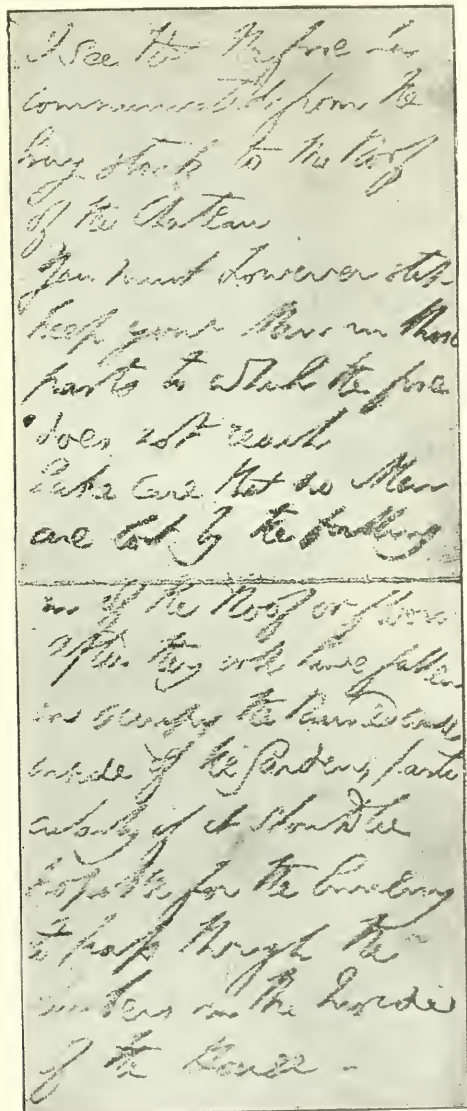 I see that the fire has
communicated from the
hay stack to the Roof
of the Chateau
You must however still
keep your Men in those
parts to which the fire
does not reach
Take care that no Men
are lost by the falling
in of the Roof or floors
After they will have fallen
in occupy the Ruined walls
inside of the Garden, parti
cularly if it should be
possible for the Enemy
to pass through the
Embers in the Inside
of the House -